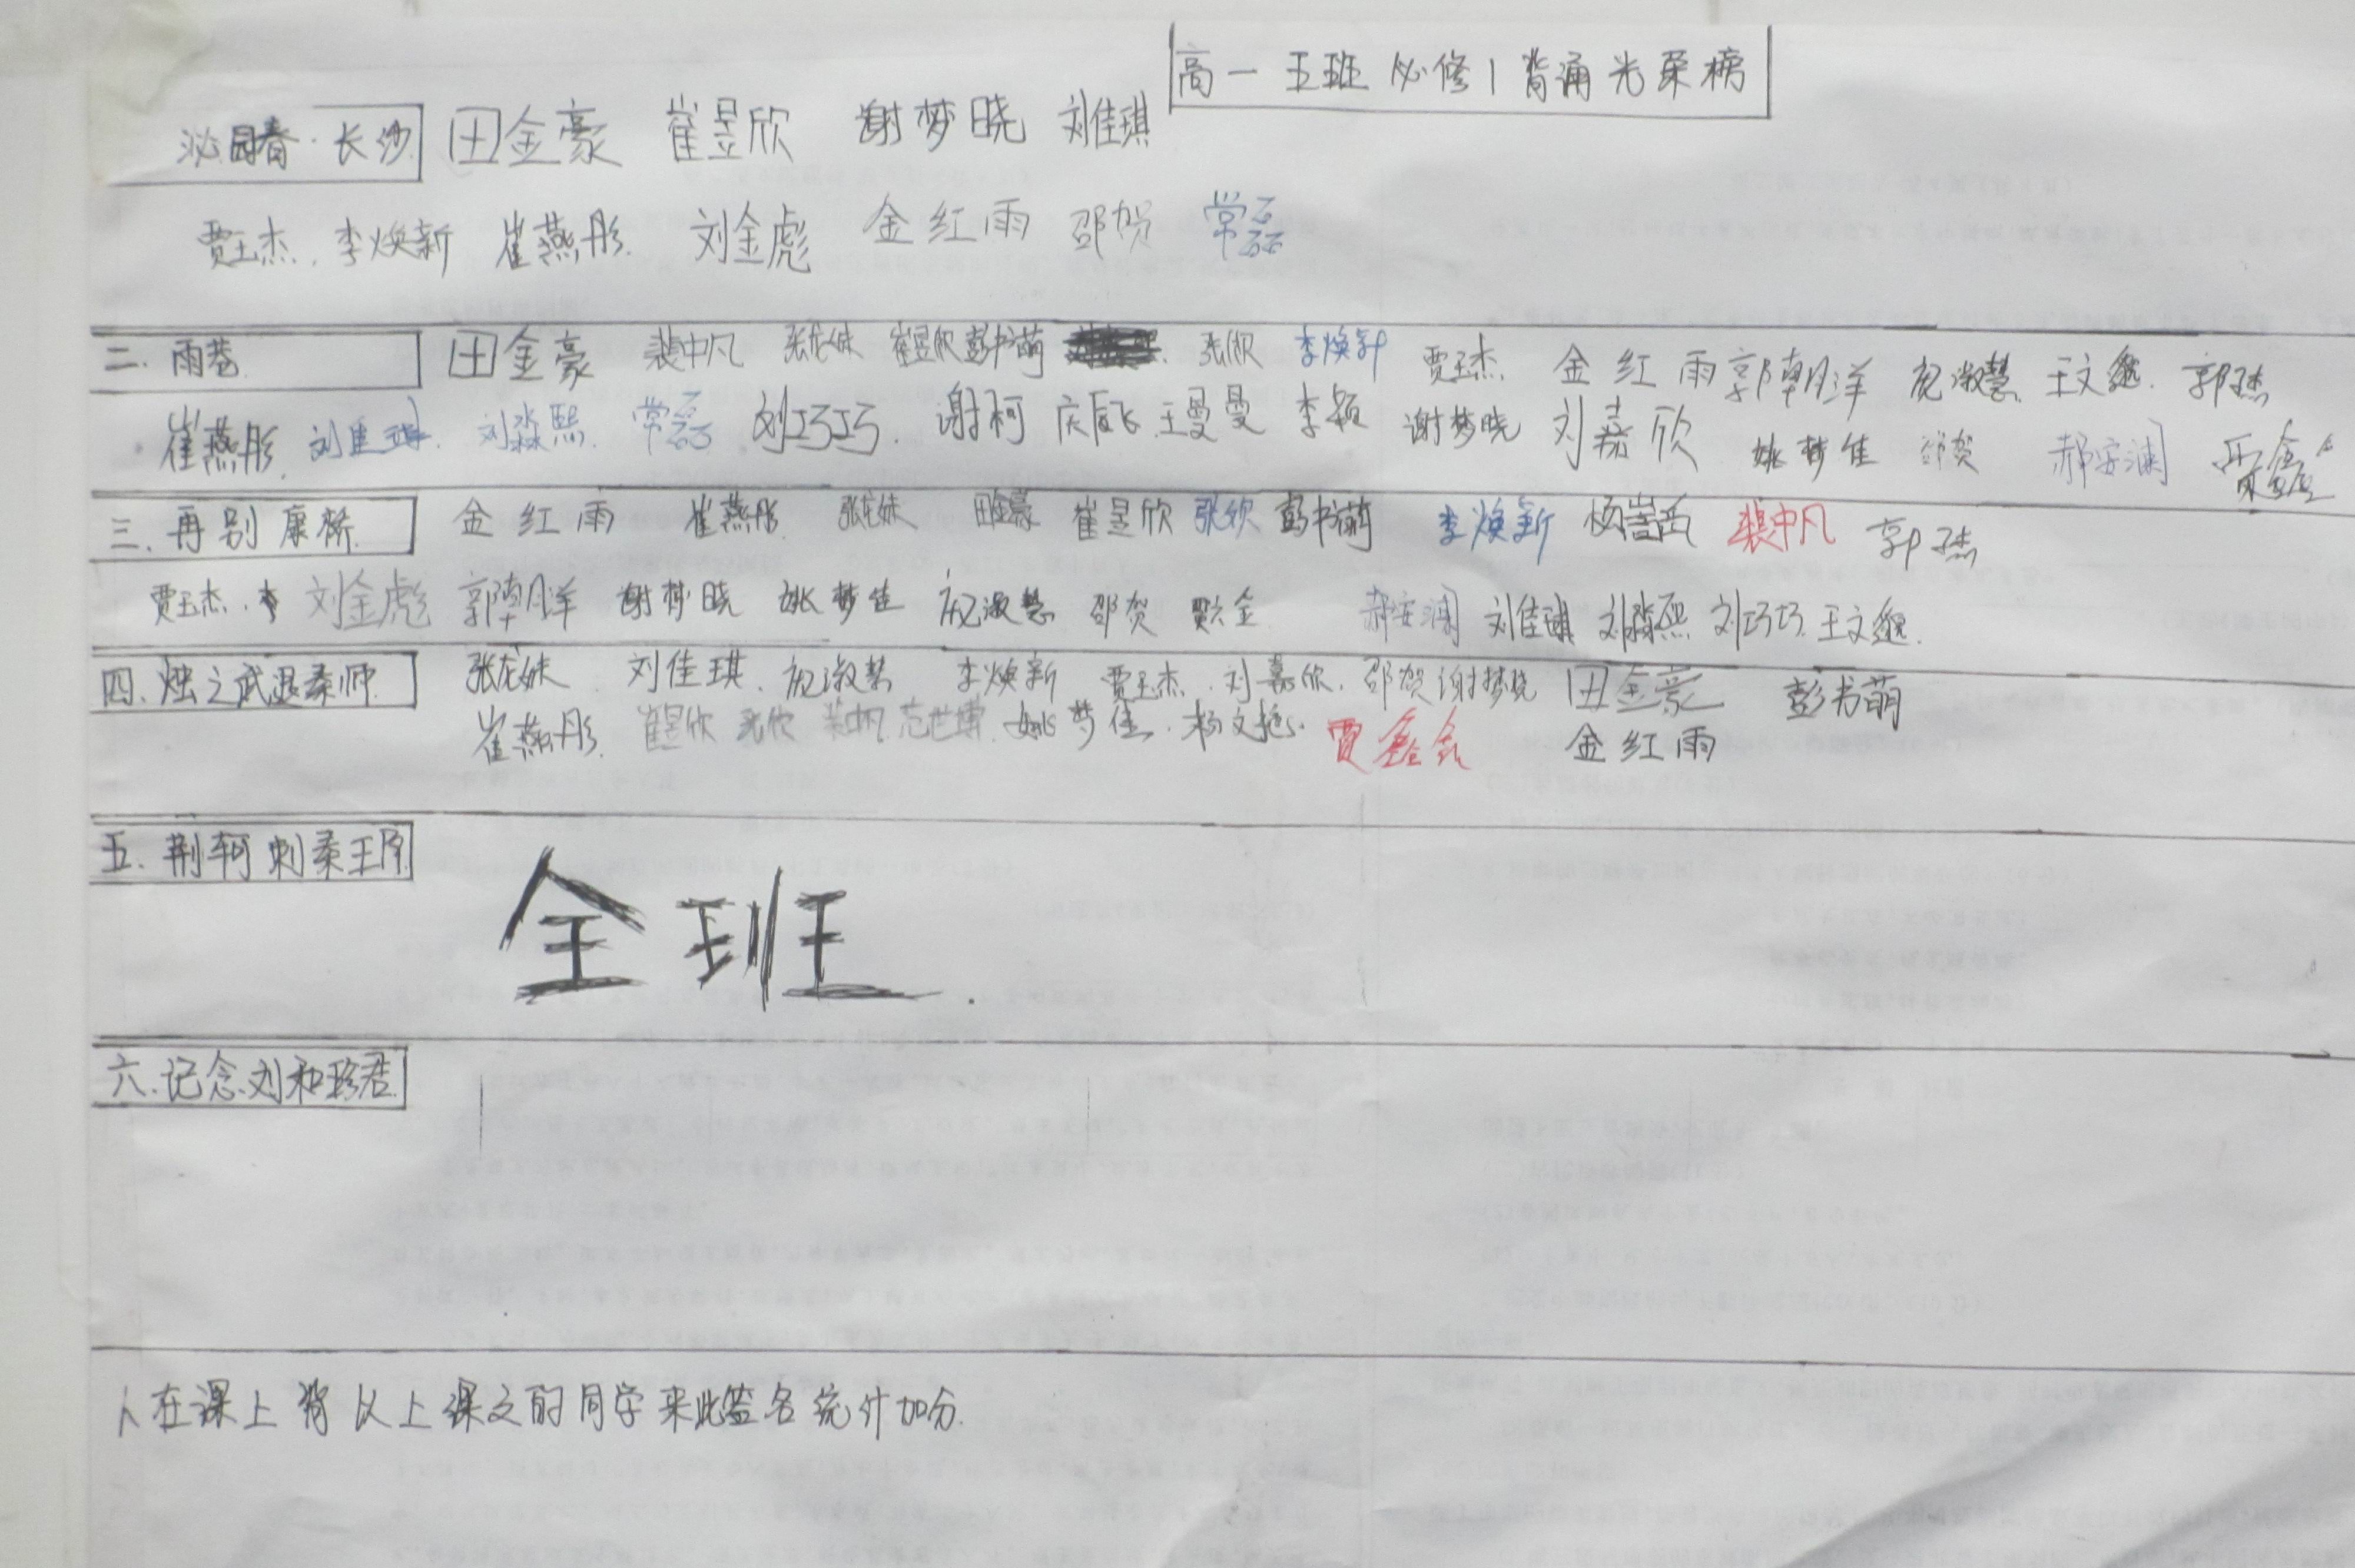 高一五班必修1背诵光荣榜
沁园春·长沙 田金豪 崔昱欣 谢梦晓 刘佳琪
贾玉杰. 李焕新 崔燕彤. 刘金彪 金红雨 邵贺 常磊
二. 雨巷 田金豪 裴中凡 张龙妹 崔昱欣 彭书萌 张欣 李焕新 贾玉杰 金红雨 郭朝洋 祝淑慧 王文魁. 郭杰
崔燕彤. 刘佳琪. 刘淼熙. 常磊. 刘巧巧. 谢柯 王曼曼 李颖 谢梦晓 刘嘉欣 姚梦佳 邵贺 郝安澜 贾鑫鑫
三. 再别康桥. 金红雨 崔燕彤. 张龙妹 田金豪 崔昱欣 张欣 彭书萌 李焕新 裴中凡 郭杰
贾玉杰. 李 刘金彪 郭朝洋 谢梦晓 姚梦佳 祝淑慧 邵贺 郝安澜 刘佳琪 刘淼熙 刘巧巧. 王文魁.
四. 烛之武退秦师. 张龙妹 刘佳琪. 祝淑慧 李焕新 贾玉杰. 刘嘉欣. 邵贺 谢梦晓 田金豪 彭书萌
崔燕彤. 崔昱欣 张欣 裴中凡 范世博 姚梦佳. 贾鑫鑫 金红雨
五. 荆轲刺秦王序
全班.
六. 记念刘和珍君.
在课上背以上课文的同学来此签名统计加分.